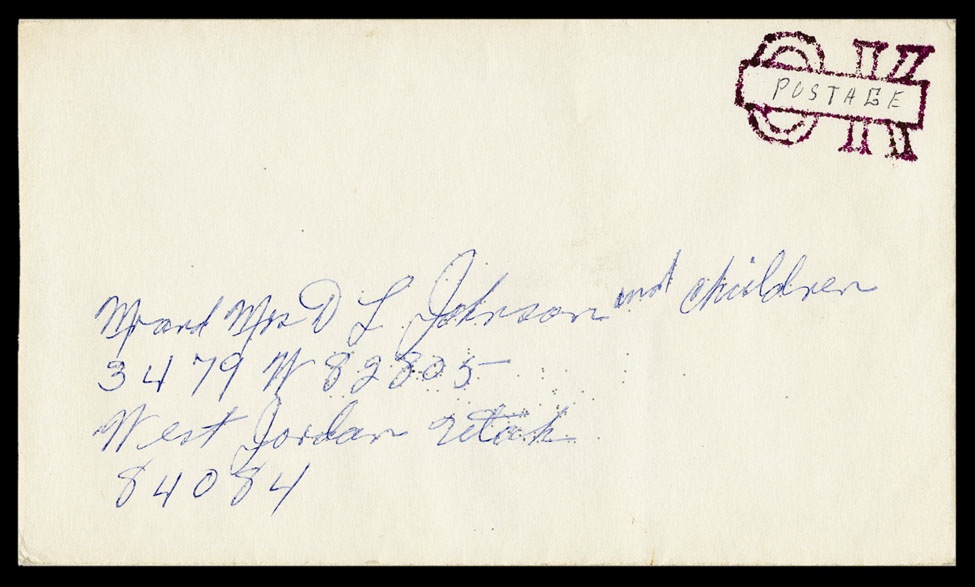 OK
POSTAGE
Mr and Mrs D L Johnson and children
3479 W 8280 S
West Jordan Utah
84084